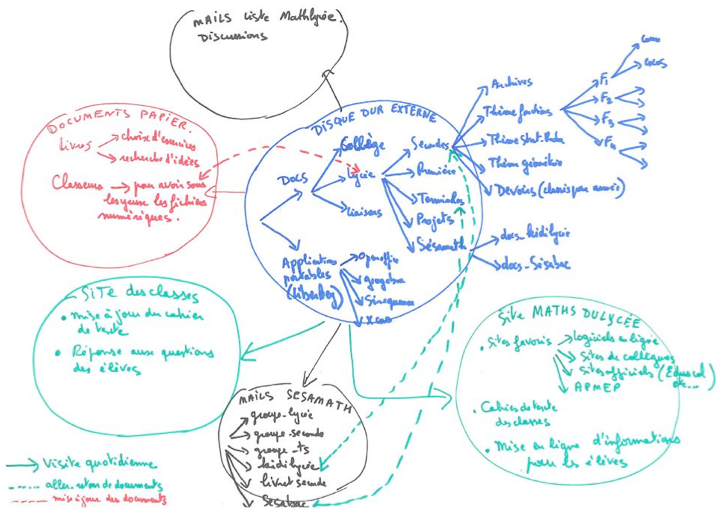 MAILS Liste Mathlycée.
Discussions
DOCUMENTS PAPIER.
Livres
choix d'exercices
recherche d'idées
Classeurs
pour avoir sous
les yeux les fichiers
numériques.
DISQUE DUR EXTERNE
Docs
Collège
Lycée
Liaisons
Secondes
Première
Terminales
Projets
Sésamath
Archives
Thème fonctions
Thème stat.
Thème géométrie
Devoirs (classés par année)
F1
F2
F3
F4
Cours
docs_kidilycée
docs_Sésabac
Applications
portables
(liberkey)
Openoffice
geogebra
Sinequanon
Xcas
Site des classes
• mise à jour du cahier
de texte
• Réponse aux questions
des élèves
MAILS SESAMATH
groupe_lycée
groupe_seconde
groupe_ts
kidilycée
livret seconde
Sésabac
Site MATHS DU LYCÉE
• Sites favoris
logiciels en ligne
Sites de collègues
Sites officiels (Eduscol
etc...
APMEP
• Cahiers de texte
des classes
• Mise en ligne d'informations
pour les élèves
Visite quotidienne
aller-retour de documents
mise à jour des documents